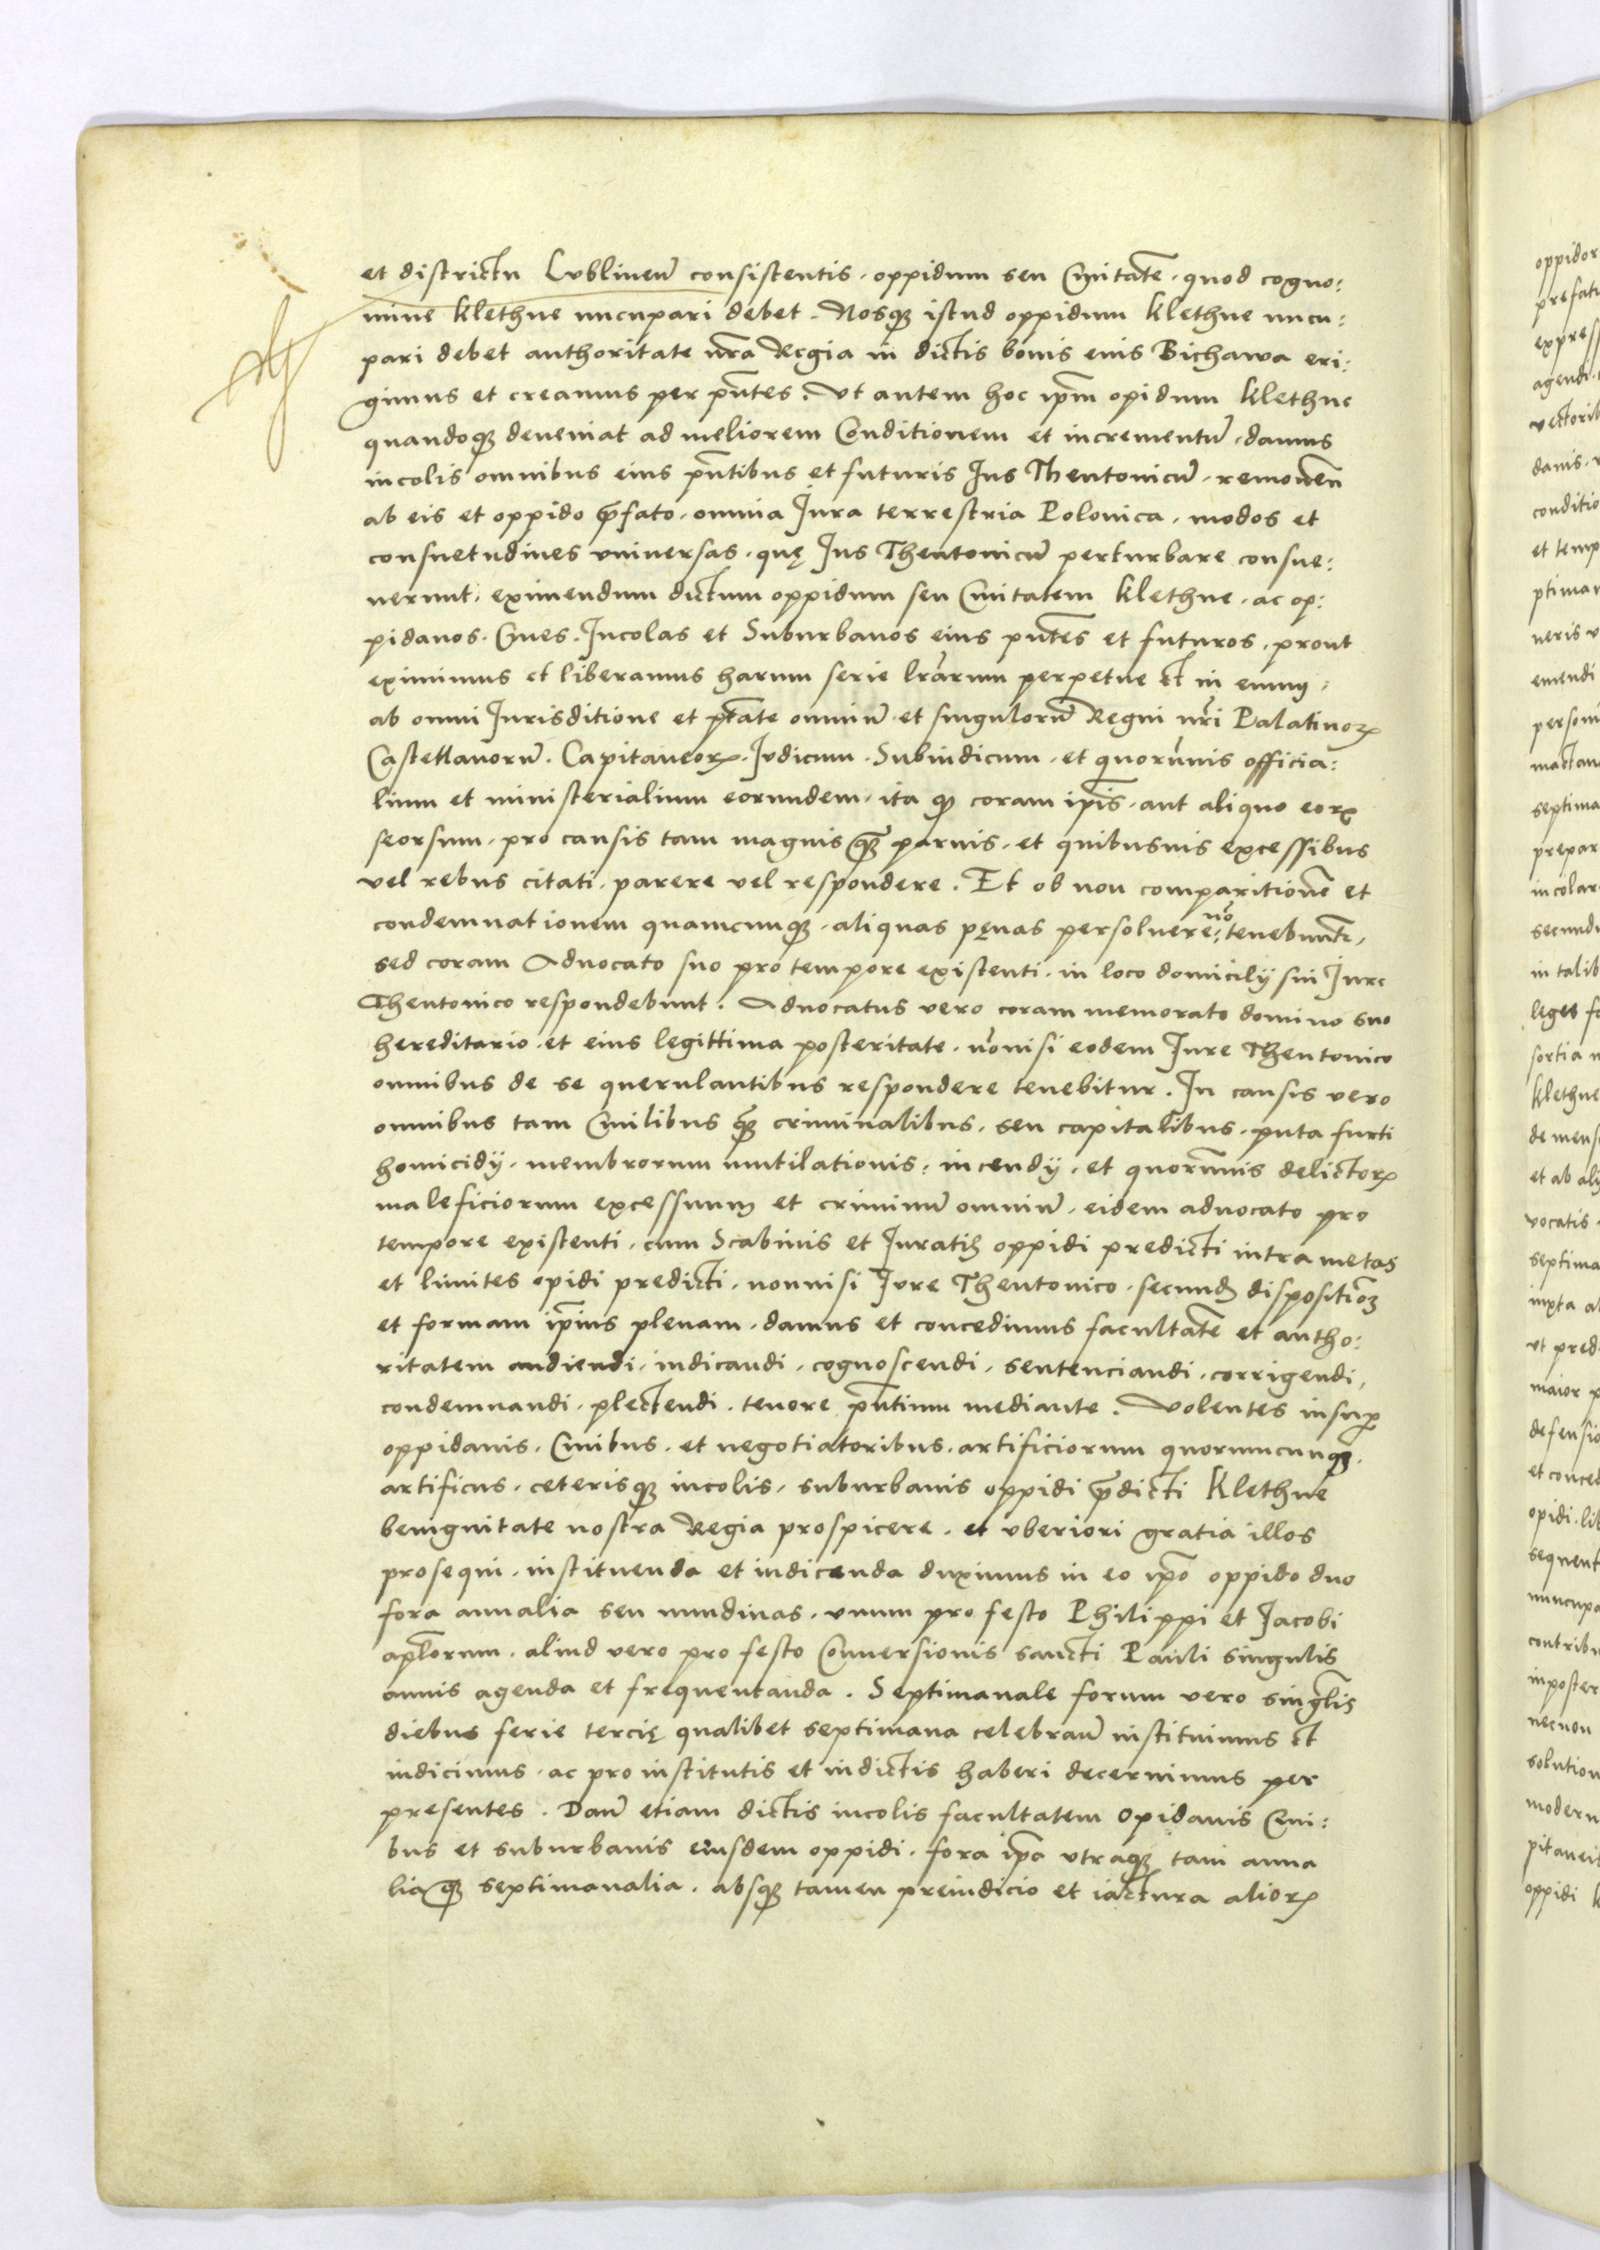 et districtu Lublinen̄ consistentis . oppidum seu Ciuitatē . quod cogno:
mine Klethne nucupari debet . Nosqꝫ istud oppidum Klethne nucu:
pari debet authoritate nr̄a Regia in dictis bonis eius Bichawa eri:
gimus et creamus per pn̄tes . Vt autem hoc ip̄m opidum Klethne
quandoqꝫ deueniat ad meliorem Conditionem et incrementū . damus
incolis omnibus eius pn̄tibus et futuris Ius Theutonicū . remouen̄
ab eis et oppido p̄fato . omnia Iura terrestria Polonica . modos et
consuetudines vniuersas . quę Ius Theutonicū perturbare consue:
uerunt . eximendum dictum oppidum seu Ciuitatem Klethne . ac op:
pidanos . Ciues . Incolas et Suburbanos eius pn̄tes et futuros . prout
eximimus et liberamus harum serie lr̄arum perpetue et in euum .
ab omni Iurisditione et ptāte omniū et singulorū Regni nr̄i Palatinoꝝ
Castellanorū . Capitaneoꝝ . Iudicum . Subiudicum . et quorūuis officia:
lium et ministerialium eorundem . ita qꝫ coram ip̄is . aut aliquo eoꝝ
seorsum . pro causis tam magnis qꝫ paruis . et quibusuis excessibus
vel rebus citati . parere vel respondere . Et ob non comparitionē et
condemnationem quamcunqꝫ . aliquas pęnas persoluere nō tenebunt̄ .
sed coram Aduocato suo pro tempore existenti . in loco domicilij sui Iure
Theutonico respondebunt . Aduocatus vero coram memorato domino suo
hereditario . et eius legittima posteritate . nōnisi eodem Iure Theutonico
omnibus de se querulantibus respondere tenebitur . In causis vero
omnibus tam Ciuilibus qꝫ criminalibus . seu capitalibus . puta furti
homicidij . membrorum mutilationis . incendij . et quorūuis delictoꝝ
maleficiorum excessuum et criminū omniū . eidem aduocato pro
tempore existenti . cum Scabinis et Iuratis oppidi predicti intra metas
et limites opidi predicti . nonnisi Iure Theutonico . secund̄ dispositiōꝫ
et formam ip̄ius plenam . damus et concedimus facultatē et autho:
ritatem audiendi . iudicandi . cognoscendi . sentenciandi . corrigendi .
condemnandi . plectendi . tenore pn̄tium mediante . Volentes insuꝑ
oppidanis . Ciuibus . et negotiatoribus . artificiorum quorumcunqꝫ .
artificus . ceterisqꝫ incolis . suburbanis oppidi p̄dicti Klethne
benignitate nostra Regia prospicere . et vberiori gratia illos
prosequi . instituenda et indicenda duximus in eo ip̄o oppido duo
fora annalia seu nundinas . vnum pro festo Philippi et Iacobi
apl̄orum . aliud vero pro festo Conuersionis sancti Pauli singulis
annis agenda et frequentanda . Septimanale forum vero singl̄is
diebus ferie tercię qualibet septimana celebran̄ instituimus et
indicimus . ac pro institutis et indictis haberi decernimus per
presentes . Dan̄ etiam dictis incolis facultatem Opidanis Ciui:
bus et suburbanis eiusdem oppidi . fora ip̄a vtraqꝫ tam anna
lia qꝫ septimanalia . absqꝫ tamen preiudicio et iactura alioꝝ